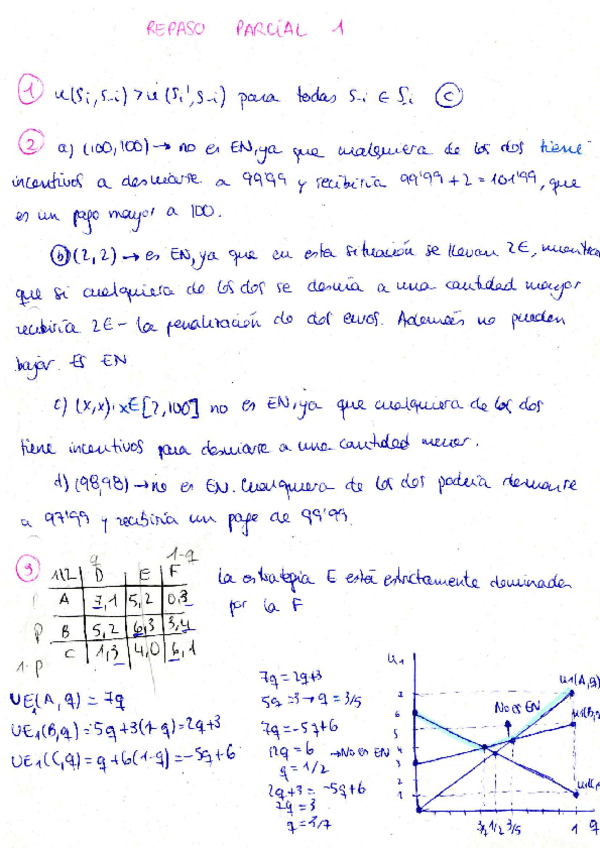 REPASO PARCIAL 1
1 u(Si, S-i) > u(Si', S-i) para todas S-i ∈ Si (c)
2 a) (100,100) → no es EN, ya que cualquiera de los dos tiene
incentivos a desviarse a 99'99 y recibiría 99'99 + 2 = 101'99, que
es un pago mayor a 100.
b) (2,2) → es EN, ya que en esta situación se llevan 2€, mientras
que si cualquiera de los dos se desvía a una cantidad mayor
recibiría 2€ - la penalización de dos euros. Además no pueden
bajar. ES EN
c) (x,x): x∈[2,100] no es EN, ya que cualquiera de los dos
tiene incentivos para desviarse a una cantidad menor.
d) (98,98) → no es EN. Cualquiera de los dos podría desviarse
a 97'99 y recibiría un pago de 99'99.
3
q 1-q
1\2 D E F
A 7,1 5,2 0,3
p B 5,2 6,3 3,4
1-p C 1,3 4,0 6,1
La estrategia E está estrictamente dominada
por la F
UE1(A,q) = 7q
UE1(B,q) = 5q+3(1-q) = 2q+3
UE1(C,q) = q+6(1-q) = -5q+6
7q = 2q+3
5q = 3 → q = 3/5
7q = -5q+6
12q = 6 → No es EN
q = 1/2
2q+3 = -5q+6
2q = 3
q = 3/7
u1
u1(A,q)
No es EN
u1(B,q
u1(C,
7
6
5
4
3
2
1
3/7 1/2 3/5 1 q